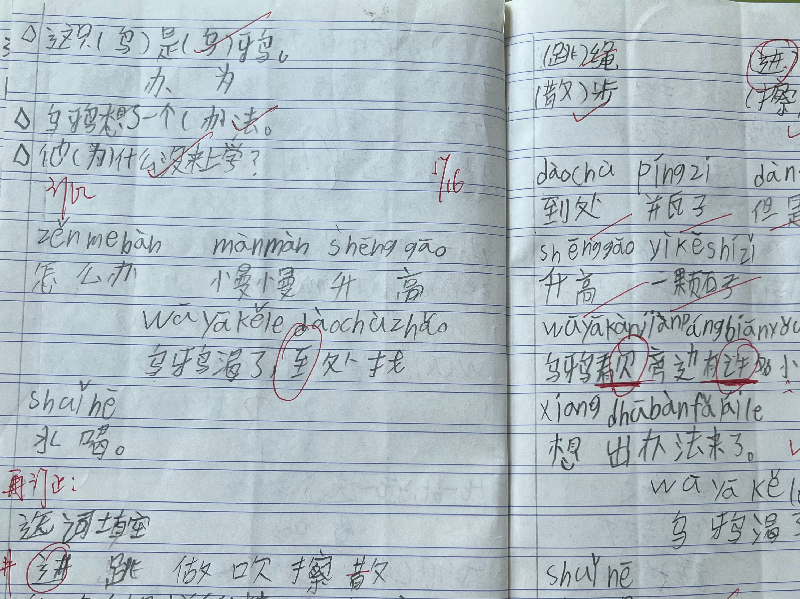 这只(鸟)是(乌)鸦。
办、为
乌鸦想了一个(办)法。
他(为)什么没来上学?
zěn me bàn màn màn shēng gāo
怎么办 慢慢 升 高
wū yā kě le dào chù zhǎo
乌鸦渴了,到处找
shuǐ hē
水喝。
再订正:
选词填空
进 跳 做 吹 擦 散
(跳)绳 (进)
(散)步 (擦
dào chù píng zǐ dàn
到处 瓶子 但是
shēng gāo yì kē shí zǐ
升高 一颗石子
wū yā kàn jiàn páng biān yǒu
乌鸦看见旁边有许多小
xiang chū bàn fǎ lái le
想 出办法来了。
wū yā kě l
乌鸦渴了
shuǐ hē